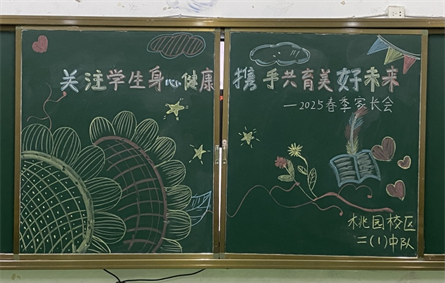 关注学生身心健康 携手共育美好未来
—2025春季家长会
桃园校区
二(1)中队